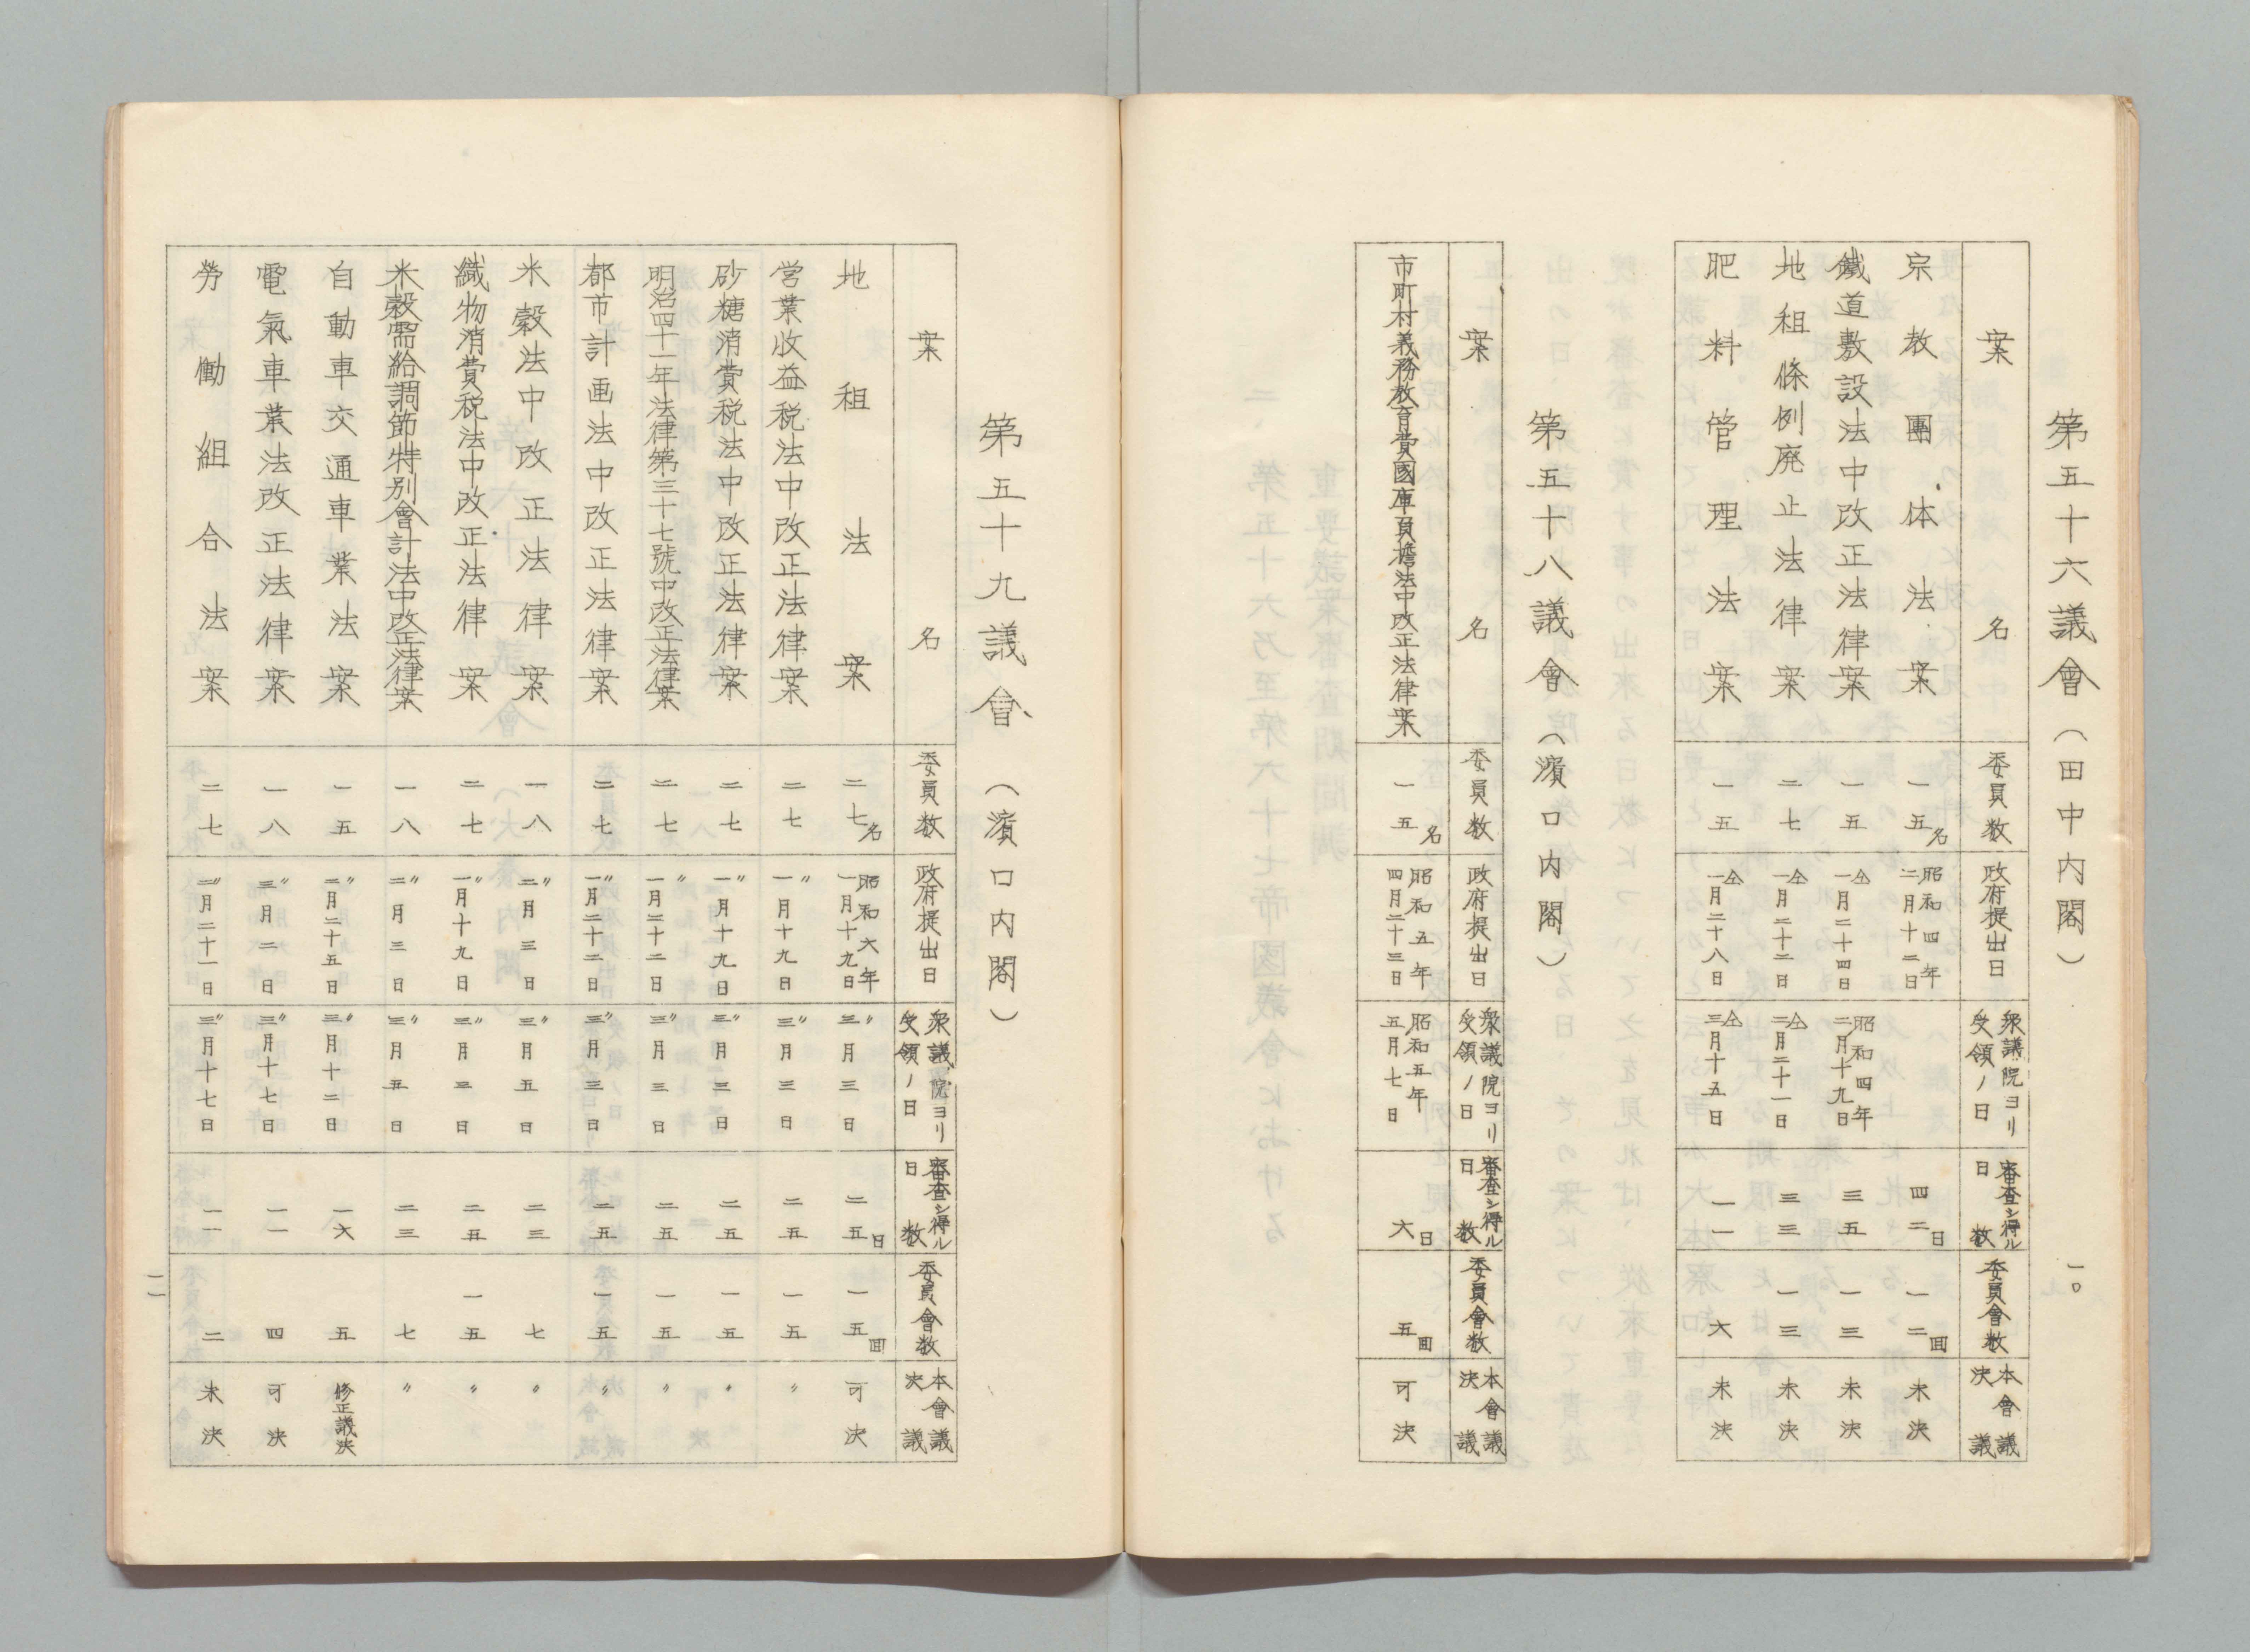 第五十六議會（田中内閣）
案名
委員数
政府提出日
衆議院ヨリ受領ノ日
審査シ得ル日数
委員會数
本會議決議
宗教團体法案
一五名
昭和四年二月十二日
四二日
一二回
未決
鐵道敷設法中改正法律案
一五
仝一月二十四日
昭和四年二月十九日
三五
一三
未決
地租條例廃止法律案
二七
仝一月二十二日
仝二月二十一日
三三
一三
未決
肥料管理法案
一五
仝一月二十八日
仝三月十五日
一一
六
未決
第五十八議會（濱口内閣）
案名
委員数
政府提出日
衆議院ヨリ受領ノ日
審査シ得ル日数
委員會数
本會議決議
市町村義務教育費國庫負擔法中改正法律案
一五名
昭和五年四月二十三日
昭和五年五月七日
六日
五回
可決
一〇
第五十九議會（濱口内閣）
案名
委員数
政府提出日
衆議院ヨリ受領ノ日
審査シ得ル日数
委員會数
本會議決議
地租法案
二七名
昭和六年一月十九日
〃三月三日
二五日
一五回
可決
営業收益税法中改正法律案
二七
〃一月十九日
〃三月三日
二五
一五
〃
砂糖消費税法中改正法律案
二七
〃一月十九日
〃三月三日
二五
一五
〃
明治四十一年法律第三十七號中改正法律案
二七
〃一月二十二日
〃三月三日
二五
一五
〃
都市計画法中改正法律案
二七
〃一月二十二日
〃三月三日
二五
一五
〃
米穀法中改正法律案
一八
〃二月三日
〃三月五日
二三
七
〃
織物消費税法中改正法律案
二七
〃一月十九日
〃三月三日
二五
一五
〃
米穀需給調節特別會計法中改正法律案
一八
〃二月三日
〃三月五日
二三
七
〃
自動車交通車業法案
一五
〃二月二十五日
〃三月十二日
一六
五
修正議決
電氣車業法改正法律案
一八
〃三月二日
〃三月十七日
一一
四
可決
勞働組合法案
二七
〃二月二十一日
〃三月十七日
一一
二
未決
一一